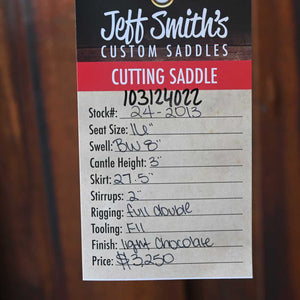 Jeff Smith's
CUSTOM SADDLES
CUTTING SADDLE
103124022
Stock#: 24-2013
Seat Size: 16"
Swell: BW 8"
Cantle Height: 3"
Skirt: 27.5"
Stirrups: 2"
Rigging: full double
Tooling: F11
Finish: light chocolate
Price: $3250